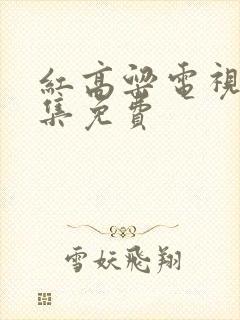 紅高粱電視
集免費
雪妖飛翔